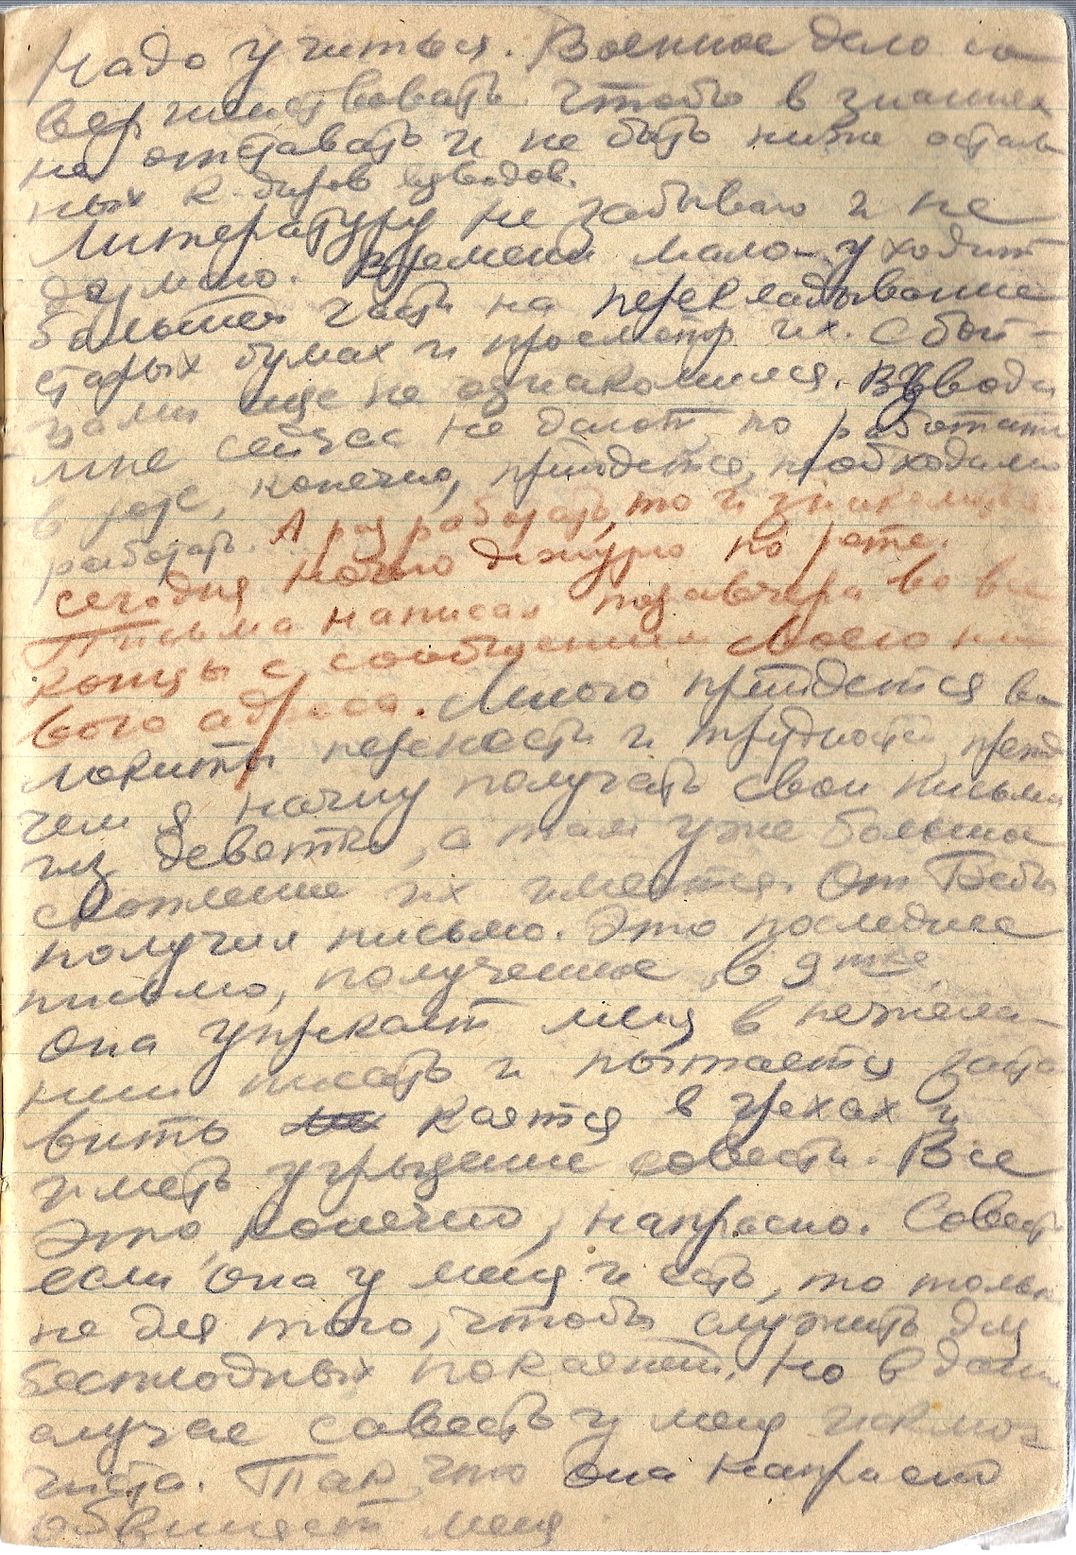 Надо учиться. Военное дело со-
вершенствовать, чтобы в знаниях
не отставать и не быть ниже осталь
ных к-диров взводов.
Литературу не забываю и не
думаю. Времени мало – уходит
большей част на перекладывание
старых бумах и просмотр их. С бой-
цами еще не ознакомился. Взвода
мне сейчас не дают, но работать
в роте, конечно, прийдется, необходимо
работать. А раз работать, то и знакомиться
Сегодня ночью дежурю по роте.
Письма написал позавчера во все
концы с сообщением своего но-
вого адреса. Много прийдется
ложить нервности и трудностей, прежд
чем я начну получать свои письма
из девятки, а там уже большое
скопление их имеется. От Бебы
получил письмо. Это последнее
письмо, полученное в 9 тке
Она упрекает меня в нежела-
нии писать и пытается заста
вить каятся в грехах и
иметь угрызение совести. Все
это, конечно, напрасно. Совесть
если она у меня и есть, то только
не для того, чтобы служить для
бесплодных покаяний. Но в данном
случае совесть у меня
чиста. Так что она напрасно
обвиняет меня